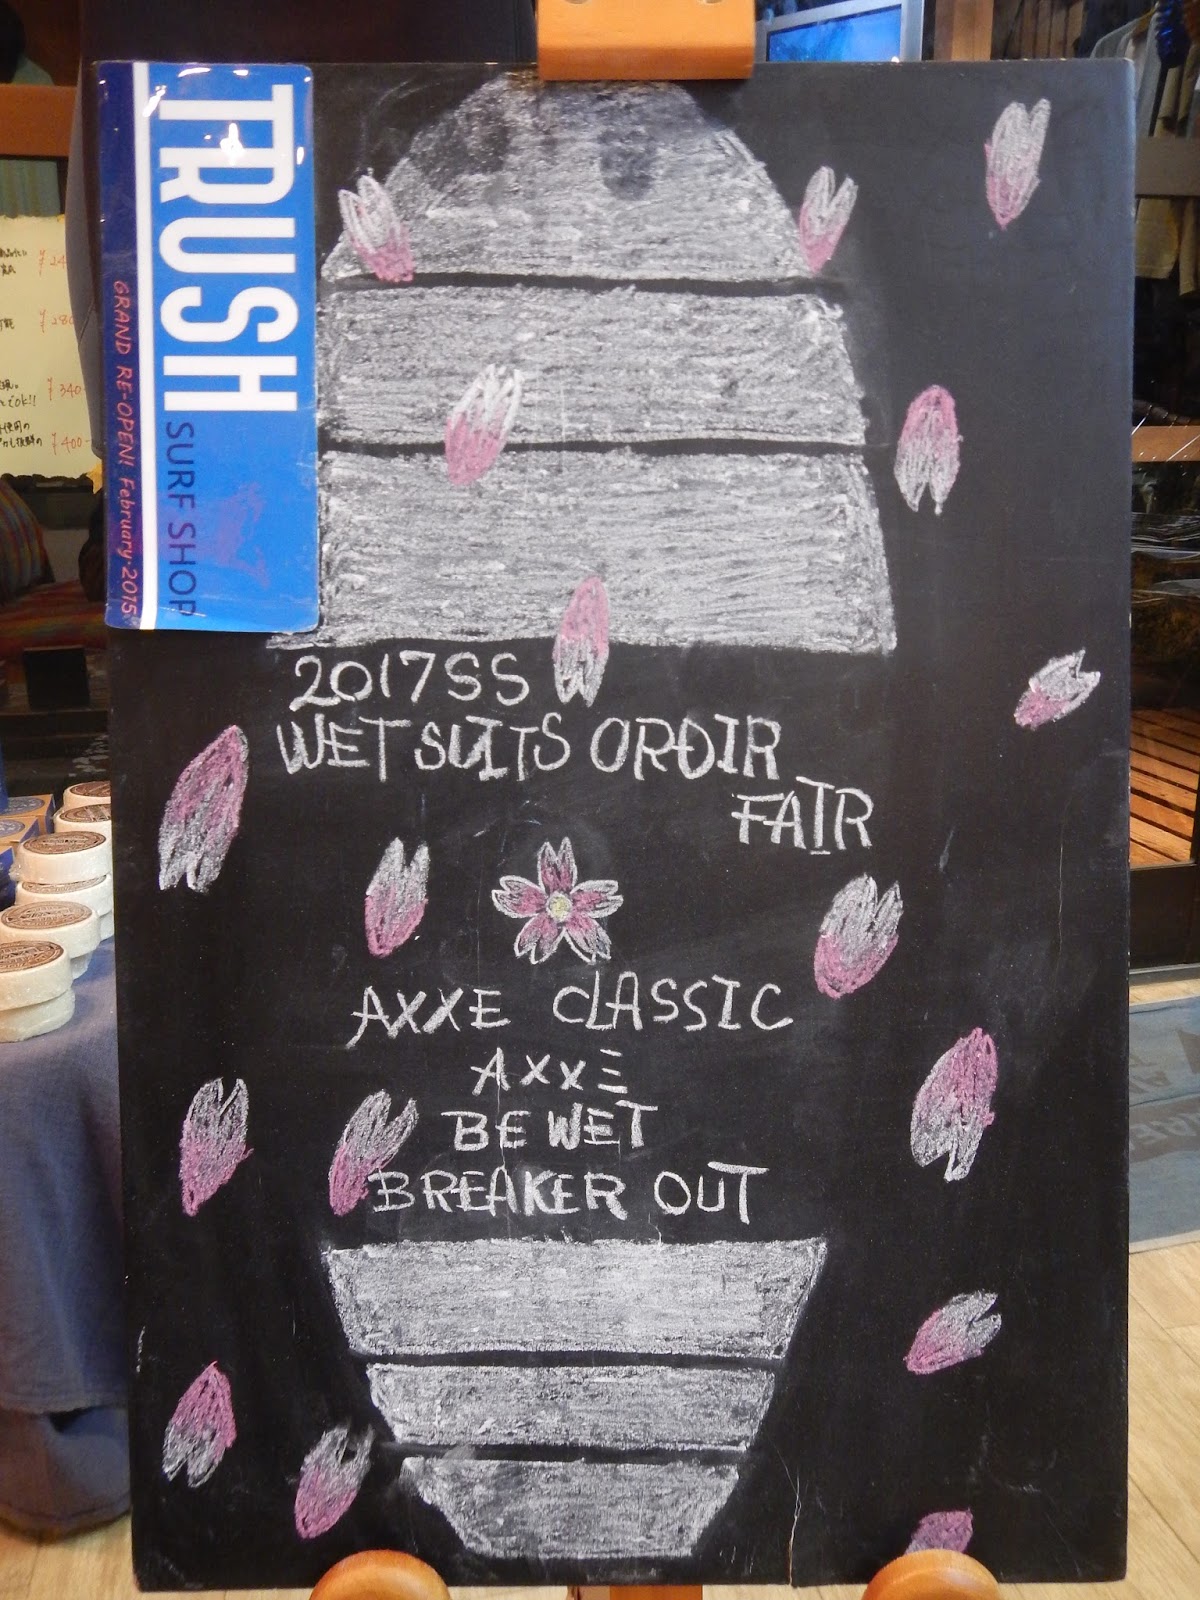 TRUSH
SURF SHOP
GRAND RE-OPEN! February.2015
2017SS
WETSUITS ORDIR
FAIR
AXXE CLASSIC
AXXE
BE WET
BREAKER OUT